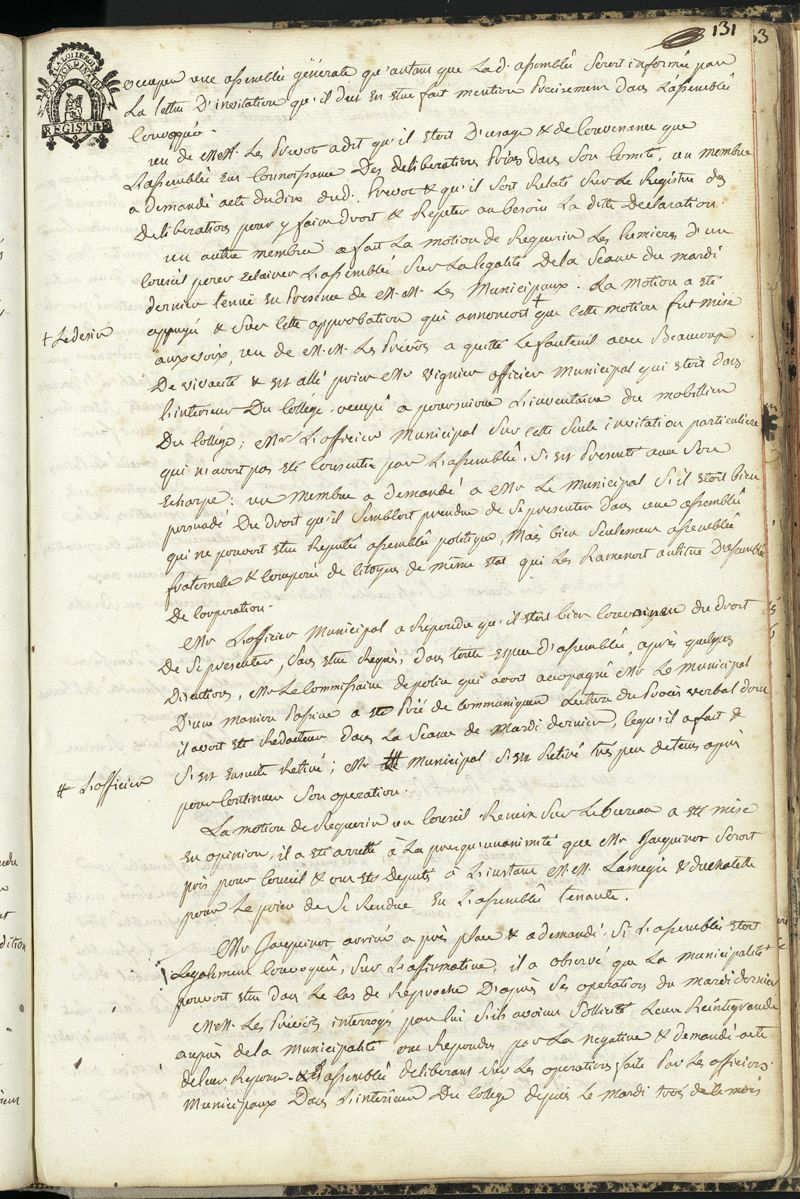 131 53
occuper une assemblée générale qu'autant que Lad. assemblée seroit informée par
La lettre D'invitation qu'il doit En etre fait mention Précisement dans L'assemblée
Convoquée.
un de MM. Les Prevots a dit qu'il etoit D'usage & de Convenance que
L'assemblée eut Connoissance Des deliberations Prises dans Son Comité, un membre
a demandé acte du dire dud. Prevot & qu'il soit Relaté Sur Le Registre des
Deliberations pour y faire droit & Repeter au besoin La ditte Declaration.
un autre membre a fait La motion de Requerir Les Lumieres d'un
Conseil pour eclairer L'assemblée Sur La legalité De la Seance du mardi
dernier tenue En Presence de M.M. Les Municipaux. La motion a eté
appuyé & Sur Cette approbation qui annoncoit + que Cette motion fut mise
+ Le desir
aux voix, un de M.M. Les Prévôts a quitté Le fauteuil avec Beaucoup
De vivacité & est allé prier Mr Vignier officier Municipal qui etoit dans
L'interieur Du Collége, occupé a poursuivre L'inventaire du mobillier
Du Collége; Mr L'officier Municipal Sur Cette Seule invitation particuliere
qui n'avoit pas eté Consentie par L'assemblée, S'est Presenté avec Son
Echarpe: un Membre a Demandé a Mr Le Municipal S'il etoit bien
persuadé Du droit qu'il Sembloit prendre de Se presenter dans une assemblée
qui ne pouvoit etre Reputée assemblée politique, Mais bien Seulement assemblée
fraternelle & Composée de Citoyens de même etat qui Les Ramenoit au titre D'assemblée
De Corporation.
Mr L'officier Municipal a Repondu qu'il etoit bien Convaincu du droit
De Se presenter, Sans etre Requis, dans toute espece d'assemblée, après quelques
Discutions, Mr Le Commissaire de police qui avoit accompagné Mr Le Municipal
D'une maniere Passive a eté Prié de Communiquer Lecture du Procès verbal dont
il avoit eté Redacteur dans La Seance de Mardi dernier, Ce qu'il a fait &
S'est ensuite Retiré; Mr # Municipal S'est Retiré très peu de tems après
# L'officier
pour Continuer Son operation.
La motion de Requerir un Conseil Remise Sur Le bureau a eté mise
En opinion, il a eté arretté à La presqu'unanimité que Mr Jacquinot Seroit
pris pour Conseil & ont eté Deputés à L'instant M.M. Lamegie & duchatelle
pour Le prier de Se Rendre En L'assemblée tenante.
Mr Jacquinot arrivé a pris place & a demandé Si L'assemblée etoit
Legalement Convoquée, Sur L'affirmative, il a observé que La Municipalité
pouvoit etre dans Le Cas de Reproche D'après Ses operations du mardi dernier
MM. Les Prévôts interrogés par lui S'ils avoient Sollicité Leur Reintegrande
auprès de La Municipalité ont Repondu par La negative & demandé acte
de leur Reponse. & L'assemblée deliberant Sur Les operations faite Par Les officiers
Municipaux Dans L'interieur Du College depuis Le mardi trois de Ce mois
REGISTRE